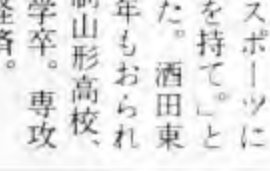 スポーツに
を持て。」と
た。酒田東
年もおられ
制山形高校、
学卒。専攻
経済。